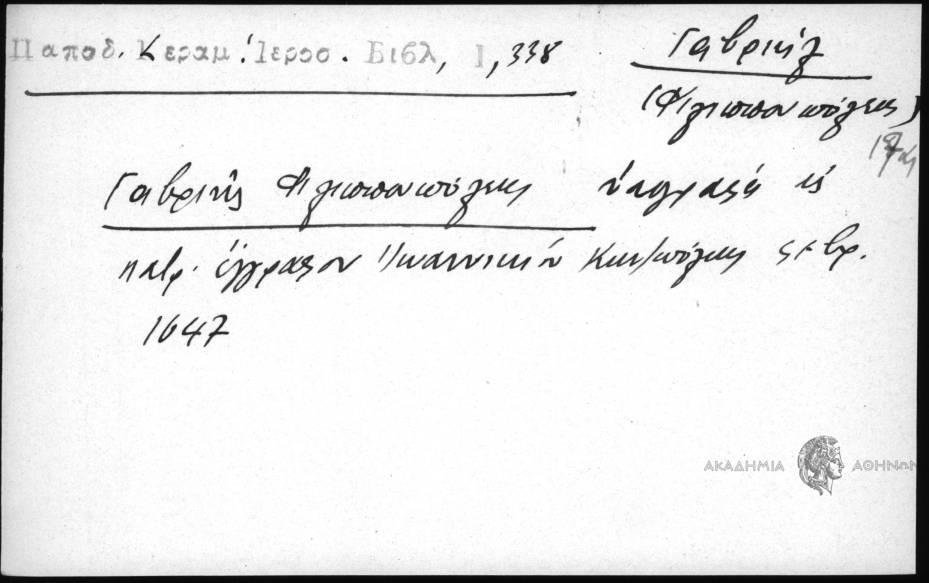 Παποδ. Κεραμ. Ιεροσ. Βιβλ, Ι, 338
Γαβριήλ
(Φιλιππουπόλεως)
17ος
Γαβριήλ Φιλιππουπόλεως ὑπογραφή εἰς
πατρ. ἔγγραφον Ἰωαννικίου Κων/πόλεως
1647
ΑΚΑΔΗΜΙΑ ΑΘΗΝΩΝ